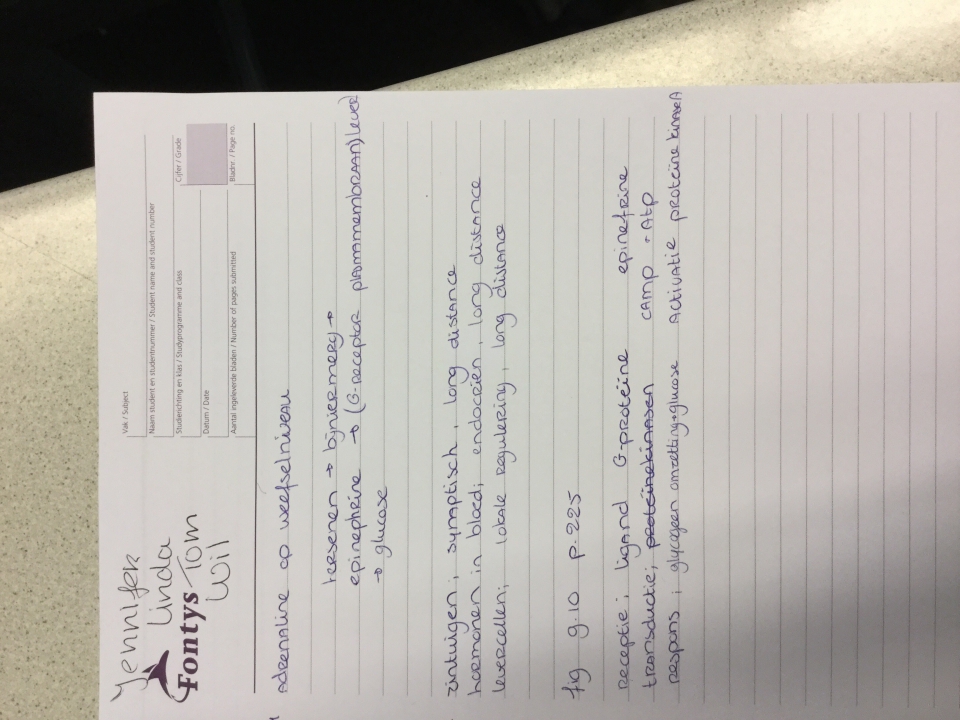 Jennifer
Linda
Fontys Tom
Wil
Vak / Subject
Naam student en studentnummer / Student name and student number
Studierichting en klas / Studyprogramme and class
Cijfer / Grade
Datum / Date
Aantal ingeleverde bladen / Number of pages submitted
Bladnr. / Page no.
Adrenaline op weefselniveau
hersenen → bijniermerg →
epinephrine → (G-receptor plasmamembraan) lever
→ glucose
zintuigen ; synaptisch , long distance
hormonen in bloed; endocrien , long distance
levercellen; lokale regulering , long distance
fig 9.10 p.225
receptie ; ligand G-proteïne epinefrine
transductie; proteïnekinasen cAMP → Atp
respons ; glycogeen omzetting→glucose Activatie proteïne kinase A